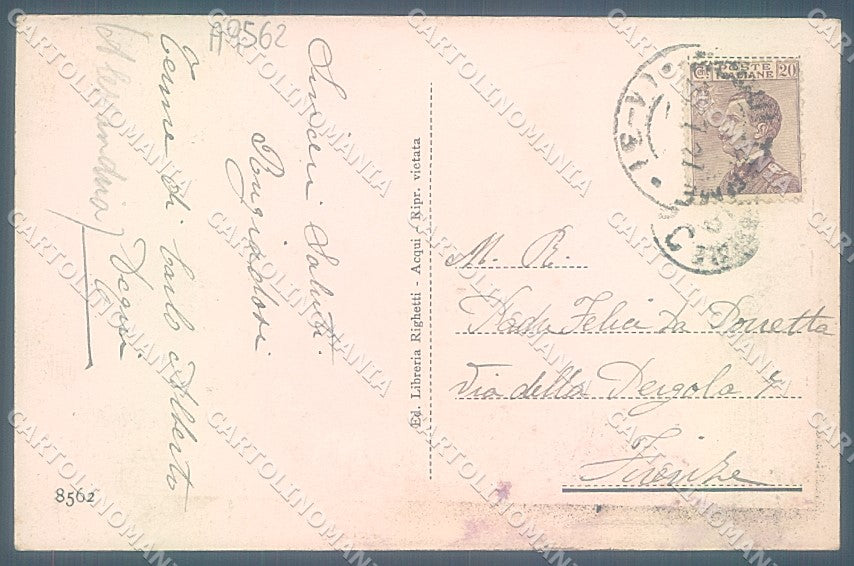 A9562
Sinceri Saluti.
Terme di Carlo Alberto
(Alessandria)
8562
Ed. Libreria Righetti - Acqui - Ripr. vietata
POSTE
ITALIANE
Ct. 20
M. R.
Padre Felice da Porretta
Via della Pergola 4
Firenze
CARTOLINOMANIA